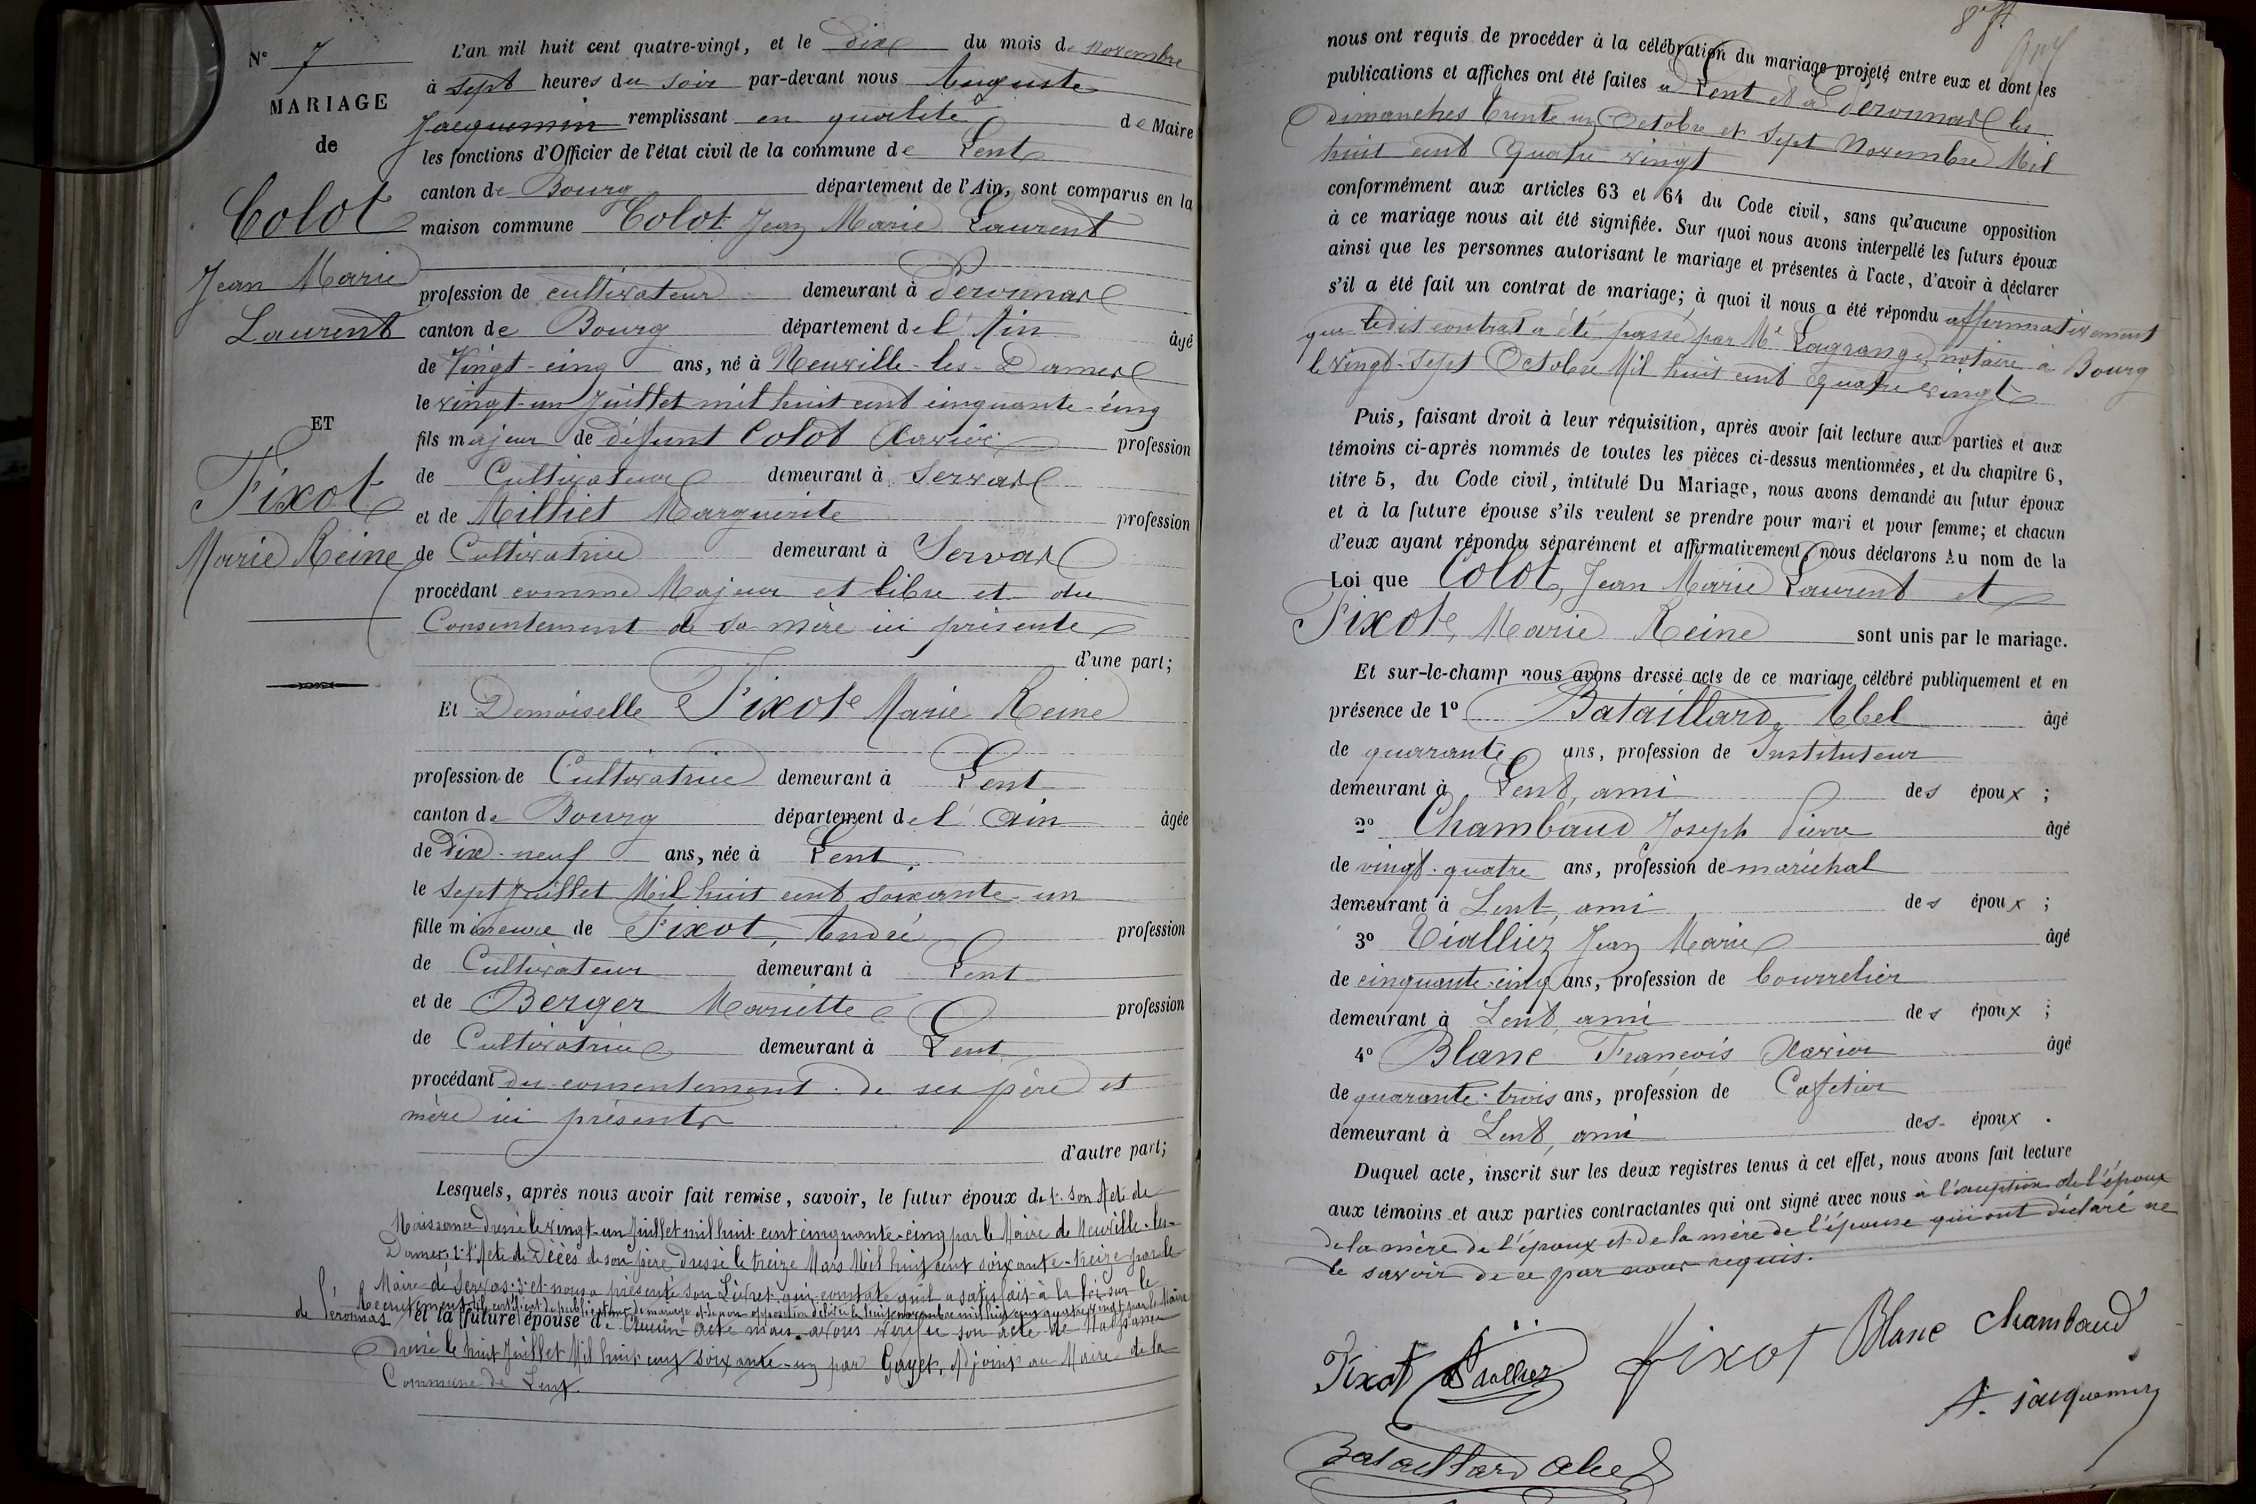 N° 7
MARIAGE
de
Colot
Jean Marie
Laurent
ET
Fixot
Marie Reine
L'an mil huit cent quatre-vingt, et le dix du mois de novembre
à sept heures du soir par-devant nous Auguste
Jacquemin remplissant en qualité de Maire
les fonctions d'Officier de l'état civil de la commune de Lent
canton de Bourg département de l'Ain, sont comparus en la
maison commune Colot Jean Marie Laurent
profession de cultivateur demeurant à Péronnas
canton de Bourg département de l'Ain âgé
de Vingt-cinq ans, né à Neuville-les-Dames
le vingt-un Juillet mil huit cent cinquante-cinq
fils majeur de défunt Colot Xavier profession
de Cultivateur demeurant à Servas
et de Milliet Marguerite profession
de Cultivatrice demeurant à Servas
procédant comme Majeur et libre et du
Consentement de sa mère ici présente
d'une part;
Et Demoiselle Fixot Marie Reine
profession de Cultivatrice demeurant à Lent
canton de Bourg département de l'Ain âgée
de Dix-neuf ans, née à Lent
le sept Juillet Mil huit cent soixante-un
fille mineure de Fixot, André profession
de Cultivateur demeurant à Lent
et de Berger Mariette profession
de Cultivatrice demeurant à Lent
procédant du consentement de ses père et
mère ici présents
d'autre part;
Lesquels, après nous avoir fait remise, savoir, le futur époux de 1° son Acte de
Naissance dressé le vingt-un Juillet mil huit cent cinquante-cinq par le Maire de Neuville-les-
Dames; 2° l'Acte de Décès de son père dressé le treize Mars Mil huit cent soixante-treize par le
Maire de Servas; 3° et nous a présenté son Livret qui constate qu'il a satisfait à la loi sur le
Recrutement; 4° certificat de publications de mariage et de non opposition délivré le huit novembre mil huit cent quatre vingt par le Maire
de Péronnas et la future épouse de Aucun acte mais avons vérifié son acte de Naissance
dressé le huit Juillet Mil huit cent soixante-un par Gayet, Adjoint au Maire de la
Commune de Lent.
nous ont requis de procéder à la célébration du mariage projeté entre eux et dont les
publications et affiches ont été faites à Lent et à Péronnas les
dimanches trente un Octobre et sept Novembre Mil
huit cent quatre vingt
conformément aux articles 63 et 64 du Code civil, sans qu'aucune opposition
à ce mariage nous ait été signifiée. Sur quoi nous avons interpellé les futurs époux
ainsi que les personnes autorisant le mariage et présentes à l'acte, d'avoir à déclarer
s'il a été fait un contrat de mariage; à quoi il nous a été répondu affirmativement
que ledit contrat a été passé par Me Lagrange, notaire à Bourg
le vingt-sept Octobre Mil huit cent quatre vingt
Puis, faisant droit à leur réquisition, après avoir fait lecture aux parties et aux
témoins ci-après nommés de toutes les pièces ci-dessus mentionnées, et du chapitre 6,
titre 5, du Code civil, intitulé Du Mariage, nous avons demandé au futur époux
et à la future épouse s'ils veulent se prendre pour mari et pour femme; et chacun
d'eux ayant répondu séparément et affirmativement, nous déclarons Au nom de la
Loi que Colot, Jean Marie Laurent et
Fixot, Marie Reine sont unis par le mariage.
Et sur-le-champ nous avons dressé acte de ce mariage célébré publiquement et en
présence de 1° Bataillard, Abel âgé
de quarante ans, profession de Instituteur
demeurant à Lent, ami des époux ;
2° Chambaud Joseph Pierre âgé
de vingt-quatre ans, profession de maréchal
demeurant à Lent, ami des époux ;
3° Vialliez Jean Marie âgé
de cinquante-cinq ans, profession de bourrelier
demeurant à Lent, ami des époux ;
4° Blanc François Xavier âgé
de quarante-trois ans, profession de Cafetier
demeurant à Lent, ami des époux .
Duquel acte, inscrit sur les deux registres tenus à cet effet, nous avons fait lecture
aux témoins et aux parties contractantes qui ont signé avec nous à l'exception de l'époux
de la mère de l'époux et de la mère de l'épouse qui ont déclaré ne
le savoir de ce par nous requis.
Fixot Vialliez fixot Blanc Chambaud
A. Jacquemin
Bataillard Abel